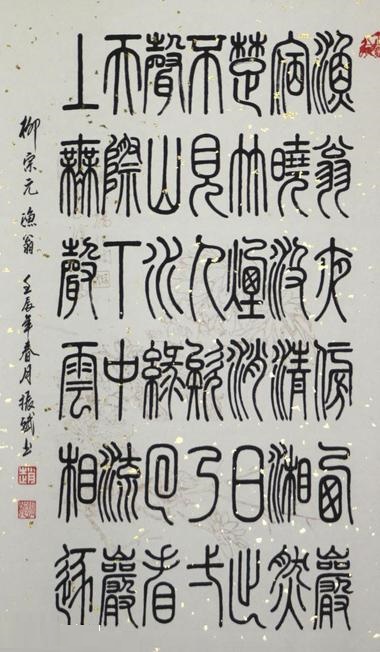 漁翁夜傍西巖
宿曉汲清湘然
楚竹煙消日出
不見人欸乃弌
聲山水綠回看
天際下中流巖
上無聲雲相逐
柳宗元漁翁 壬辰年春月振斌书